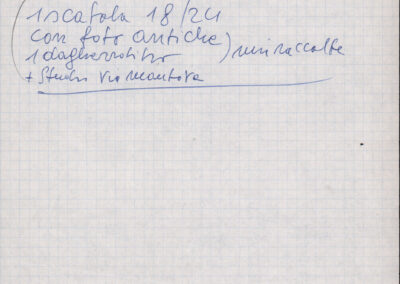 (1 scatola 18/24
con foto antiche
1 dagherrotipo ) mie raccolte
+ Studio via mantova